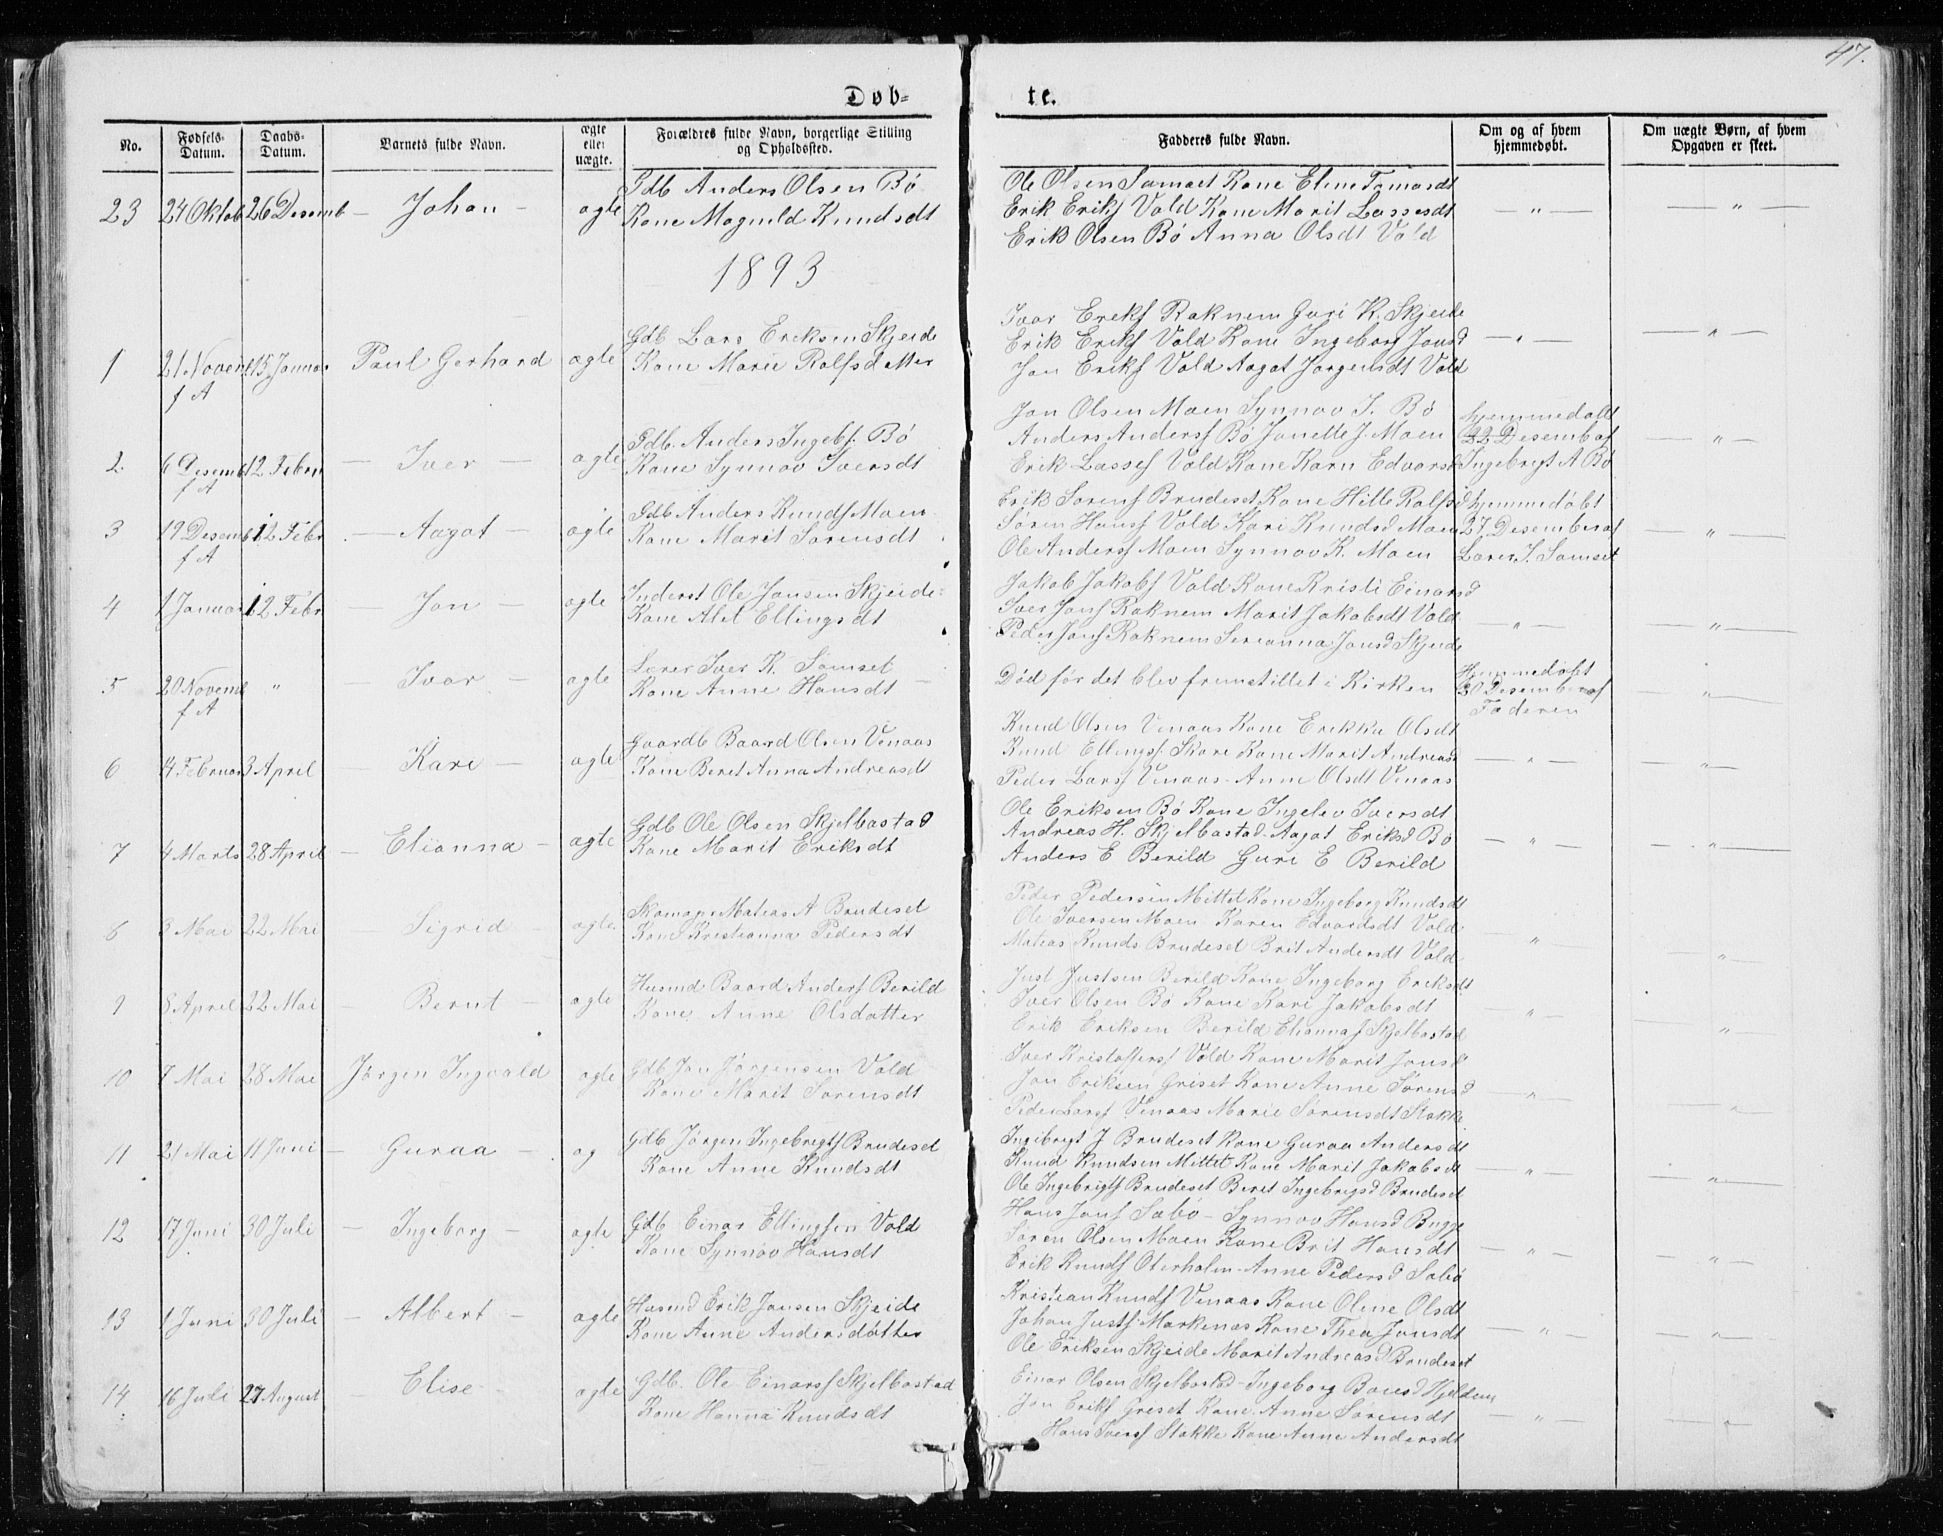 47.
Døb- te.
No. Fødsels-Datum. Daabs-Datum. Barnets fulde Navn. ægte eller uægte. Forældres fulde Navn, borgerlige Stilling og Opholdssted. Fadderes fulde Navn. Om og af hvem hjemmedøbt. Om uægte Børn, af hvem Opgaven er skeet.
23 24 Oktob 26 Desemb — Johan — ægte Gdb Anders Olsen Bø
Kone Magnild Knudsdt
Ole Olsen Samset Kone Eline Tomasdt — " — — " —
Erik Eriks Vold Kone Marit Lassesdt
Erik Olsen Bø Anna Olsdt Vold
1893
1 21 Novem f A 15 Januar Paul Gerhard ægte Gdb Lars Eriksen Skjeide
Kone Marie Rolfsdatter
Ivar Eriks Raknem Guri K. Skjeide — " — — " —
Erik Eriks Vold Kone Ingeborg Jonsd
Jon Eriks Vold Aagot Jørgensdt Vold
2. 6 Desemb f A 12 Febru — Iver — ægte Gdb. Anders Ingebs. Bø
Kone Synnøv Iversdt
Jon Olsen Moen Synnøv I. Bø hjemmedøbt
Anders Anders Bø Janette J. Moen 22 Desemb af — " —
Erik Lasses Vold Kone Karn Edvarsd Ingebrigt A Bø
3 19 Desemb f A 12 Febr — Aagot — ægte Gdb Anders Knuds Moen
Kone Marit Sørensdt
Erik Sørens Brudeset Kone Hille Rolfsd hjemmedøbt
Søren Hans Vold Kari Knudsd Moen 27 Desember af — " —
Ole Anders Moen Synnøv K. Moen Lærer I. Samset
4 1 Januar 12 Febr — Jon — ægte Inderst Ole Jonsen Skjeide
Kone Alet Ellingsdt
Jakob Jakobs Vold Kone Kristi Einarsd
Iver Jons Raknem Marit Jakobsdt Vold — " — — " —
Peder Jons Raknem Serianna Jonsd Skjeide
5 20 Novemb f A " — Ivar — ægte Lærer Iver K. Samset
Kone Anne Hansdt —
Død før det blev fremstillet i Kirken Hjemmedøbt 30 Desember af Faderen — " —
6 14 Februar 3 April — Kari — ægte Gaardb Baard Olsen Venaas
Kone Beret Anna Andreasdt
Knud Olsen Venaas Kone Erikka Olsdt
Knud Ellings. Skare Kone Marit Andreasd — " — — " —
Peder Lars Venaas - Anne Olsdt Venaas
7 4 Marts 28 April — Elianna — ægte Gdb Ole Olsen Skjelbostad
Kone Marit Eriksdt
Ole Eriksen Bø Kone Ingelev Iversdt
Andreas H. Skjelbostad - Aagot Eriksd Bø — " — — " —
Anders E Berild Guri E Berild
6 3 Mai 22 Mai — Sigrid — ægte Skomag. Mateas A Brudeset
Kone Kristianna Pedersdt
Peder Pedersen Mittet Kone Ingeborg Knudsdt
Ole Iversen Moen - Karen Edvardsdt Vold — " — — " —
Mateas Knuds Brudeset Brit Andersdt Vold
9 8 April 22 Mai — Bernt — ægte Husmd Baard Anders Berild
Kone Anne Olsdatter
Just Justsen Berild Kone Ingeborg Eriksdt
Iver Olsen Bø Kone Kari Jakobsdt — " — — " —
Erik Eriksen Berild Elianna Skjelbostad
10 7 Mai 28 Mai Jørgen Ingvald ægte Gdb Jon Jørgensen Vold
Kone Marit Sørensdt
Iver Kristoffers Vold Kone Marit Jonsd
Jon Eriksen Griset Kone Anne Sørensd — " — — " —
Peder Lars Venaas Marie Sørensdt Stokke
11 21 Mai 11 Juni — Guraa — æg Gdb Jørgen Ingebrigts Brudeset
Kone Anne Knudsdt
Ingebrigt J Brudeset Kone Guraa Andersdt
Knud Knudsen Mittet Kone Marit Jakobsdt — " — — " —
Ole Ingebrigts Brudeset Beret Ingebrigsd Brudeset
12 17 Juni 30 Juli — Ingeborg — ægte Gdb Einar Ellingsen Vold
Kone Synnøv Hansdt
Hans Jons Sabø - Synnøv Hansd Bugge
Søren Olsen Moen Kone Brit Hansdt — " — — " —
Erik Knuds Oterholm - Anne Pedersd Sabø
13 1 Juni 30 Juli — Albert — ægte Husmd Erik Jonsen Skjeide
Kone Anne Andersdatter
Kristian Knuds Venaas Kone Oline Olsdt
Johan Justs Markenes Kone Thea Jonsdt — " — — " —
Ole Eriksen Skjeide Marit Andreasd Brudeset
14 16 Juli 27 August — Elise — ægte Gdb. Ole Einars Skjelbostad
Kone Hanna Knudsdt
Einar Olsen Skjelbostad - Ingeborg
Jon Eriks Greset Kone Anne Sørensdt — " — — " —
Hans Ivers Stokke Kone Anne Andersdt